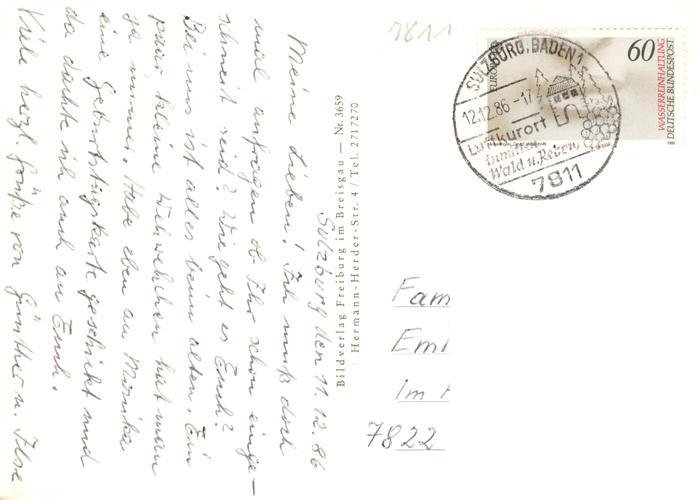 Sulzburg den 11.12.86
Meine Lieben! Ich muß doch
mal anfragen ob Ihr schon einge-
schneit seid? Wie geht es Euch?
Bei uns ist alles beim alten. Ein
paar kleine Wehwehchen hat man
ja immer. Habe eben an Monika
eine Geburtstagskarte geschickt und
da dachte ich auch an Euch.
Viele herzl. Grüße von Günther u. Ilse
Bildverlag Freiburg im Breisgau — Nr. 3659
Hermann-Herder-Str. 4 / Tel. 2717270
7811
EUROPA
60
WASSERREINHALTUNG
DEUTSCHE BUNDESPOST
SULZBURG, BADEN 1
12.12.86-17
Luftkurort
inmitten
Wald u. Reben
7811
Fam
Emi
im
7822